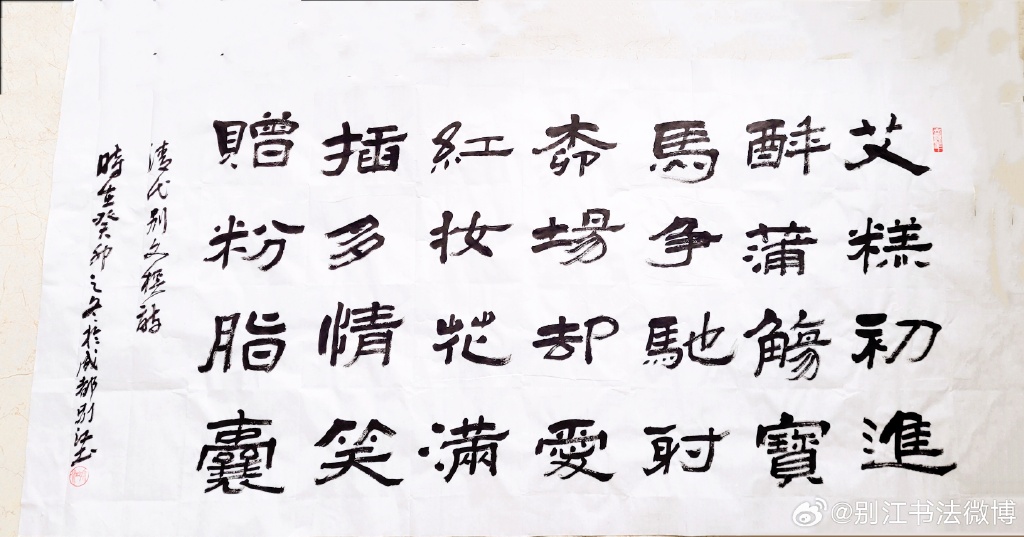 艾糕初進
酧蒲觴寶
馬争馳射
柳場却愛
紅妆花滿
插多情笑
贈粉脂囊
清代别文榠詩
時在癸卯之冬於成都别江书
@别江书法微博